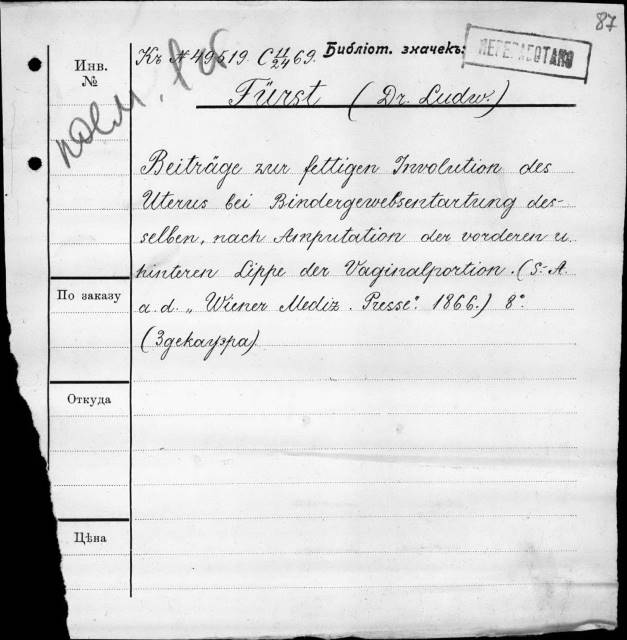 87
Инв.
№
Къ № 49519. C 11/24 69. Библіот. значекъ:
ПЕРЕРАБОТАНО
Fürst (Dr. Ludw.)
Beiträge zur fettigen Involution des
Uterus bei Bindergewebsentartung des-
selben, nach Amputation der vorderen u.
hinteren Lippe der Vaginalportion. (S.-A.
a. d. „Wiener Mediz. Presse". 1866.) 8°.
(Здекауэра)
По заказу
Откуда
Цѣна